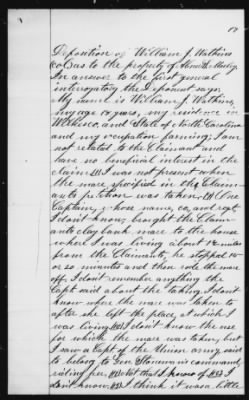 Deposition of William J. Watkins
Co Cas to the property of
In answer to the first general
interrogatory, the Deponent says
My name is William J. Watkins,
my age 18 years, my residence in
and State of North Carolina
and my occupation farming; I am
not related to the Claimant and
have no beneficial interest in the
claim. I was not present when
the mare specified in the Claim-
ants petition was taken. One
Captain, whose name, co, and regt,
I don't know, bought the Claim-
ants clay bank mare to the house
where I was living about miles
from the Claimants, he stopped 15
or 20 minutes and then rode the mare
off. I don't remember anything the
Capt said about the taking. I don't
know where the mare was taken to
after she left the place, at which I
was living I don't know the use
for which the mare was taken, but
I saw a Capt of the Union army said
to belong to Gen Stoneman's command,
riding her, Not that I know of I
don't know, I think it was a little